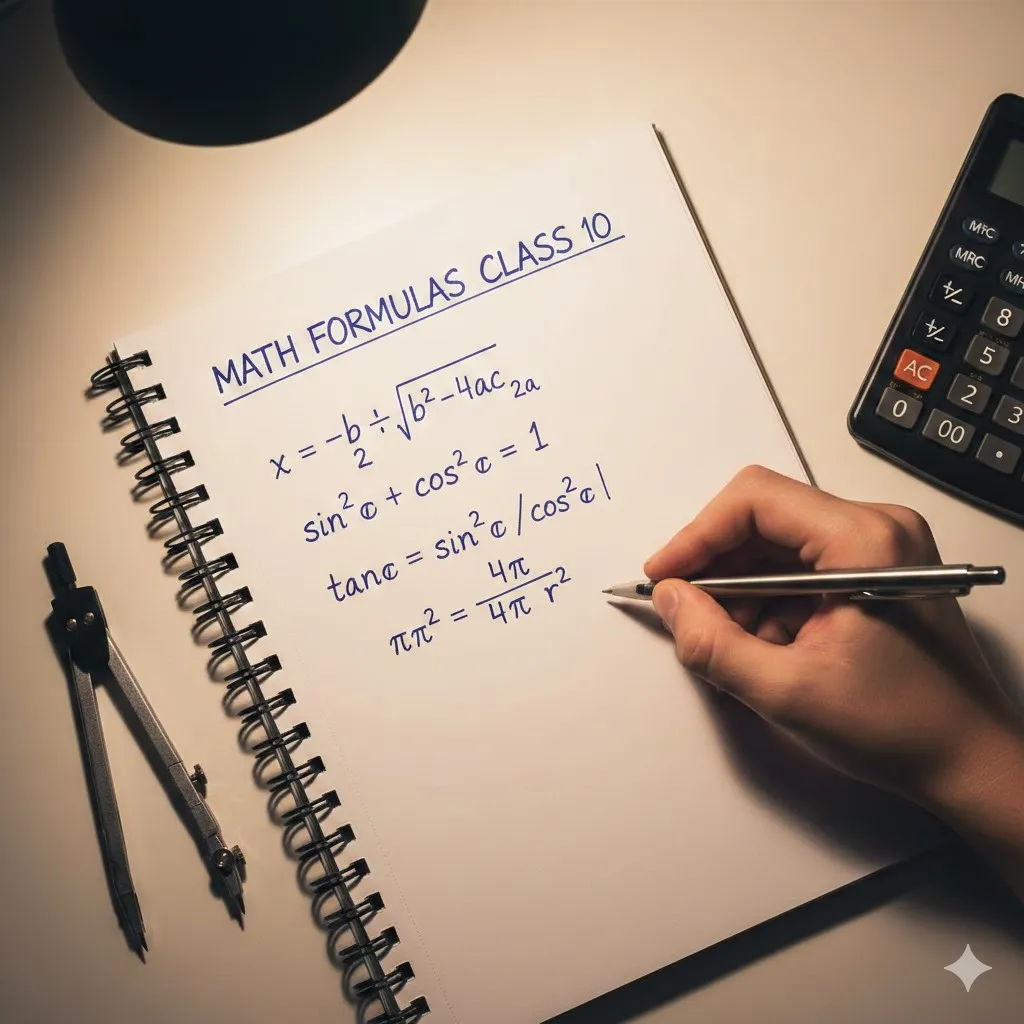 MATH FORMULAS CLASS 10
x = -b/2 ÷ √b² - 4ac 2a
sin² ȼ + cos² ȼ = 1
tanȼ = sin² ȼ / cos² ȼ |
ππ² = 4π/4π r²
M+C
MRC
MR
+/-
+/-
8
AC
5
0
2
00
3
.